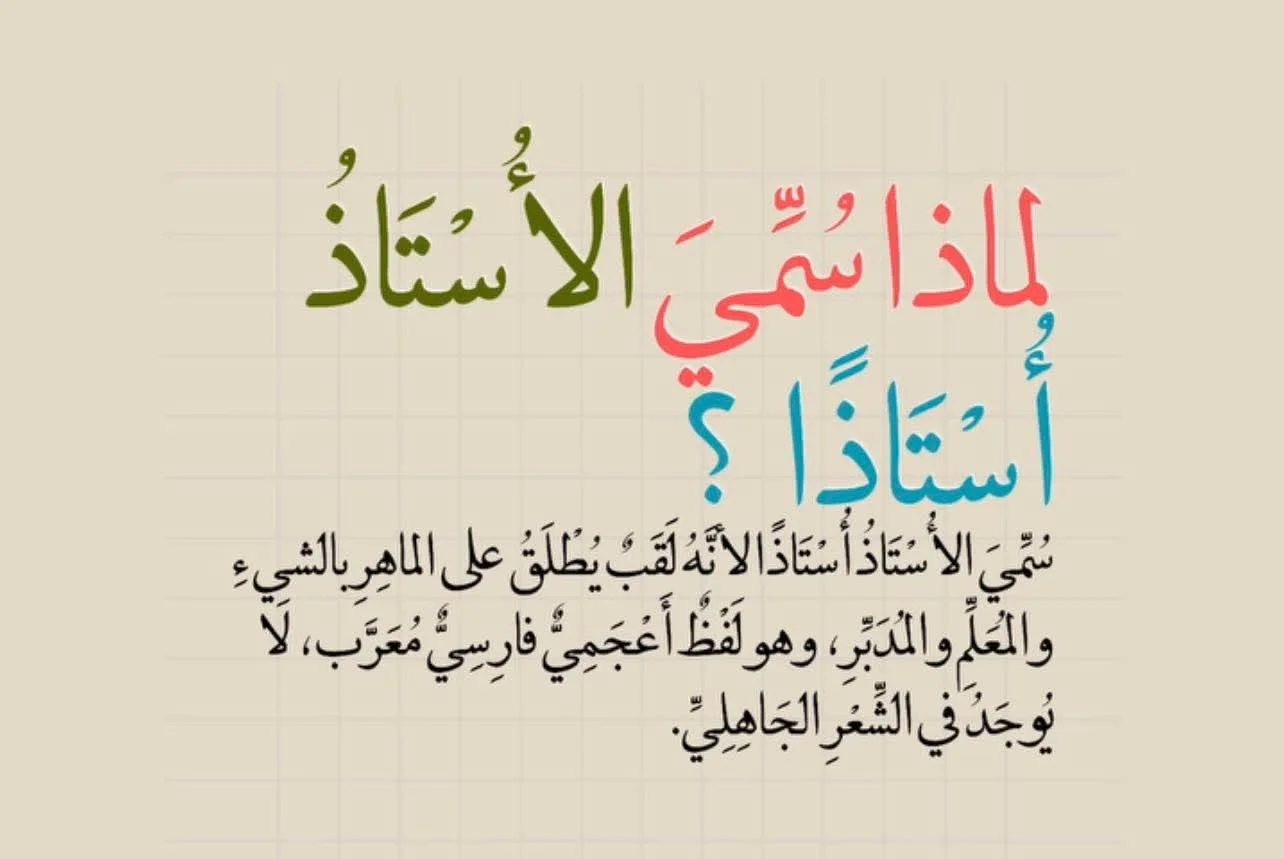 لماذا سُمِّيَ الأُسْتَاذُ
أُسْتَاذًا ؟
سُمِّيَ الأُسْتَاذُ أُسْتَاذًا لأنَّهُ لَقَبٌ يُطْلَقُ على الماهِرِ بالشيءِ
والمُعَلِّمِ والمُدَبِّرِ، وهو لَفْظٌ أَعْجَمِيٌّ فارِسِيٌّ مُعَرَّب، لَا
يُوجَدُ في الشِّعْرِ الجَاهِلِيِّ.